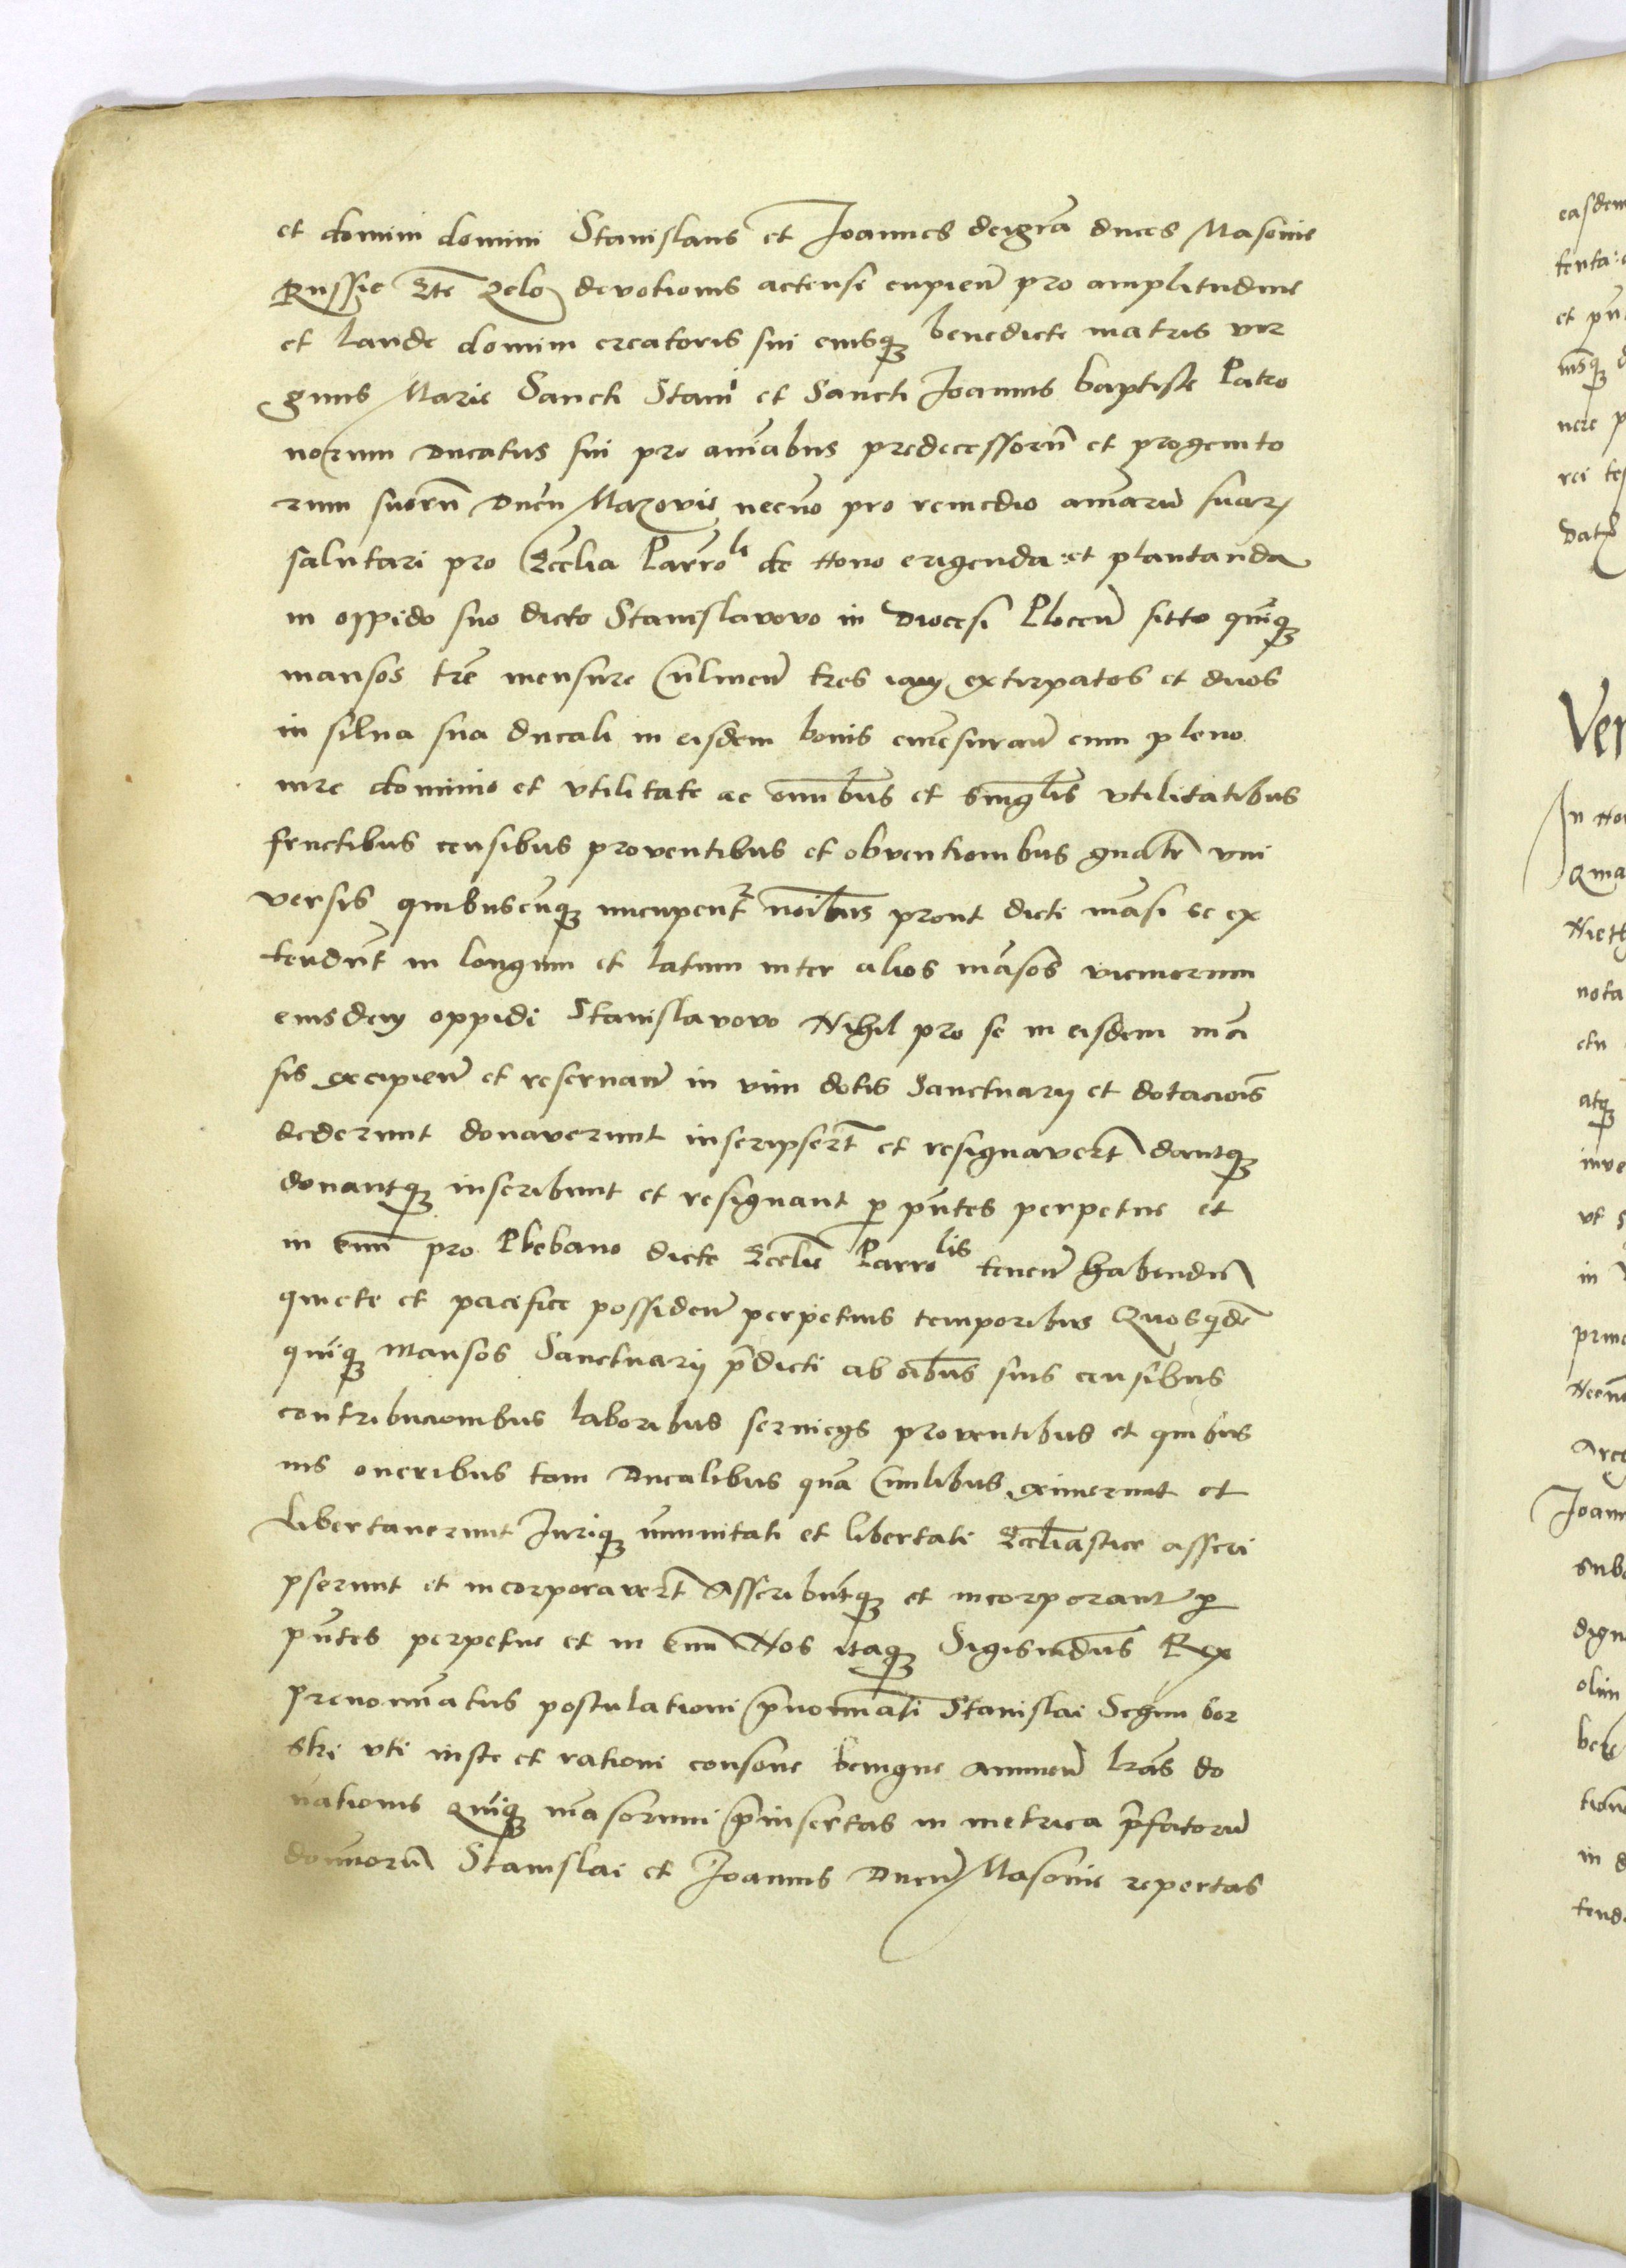 et domini domini Stanislaus et Joannes dei grã duces Masovie
Russie Etc̃ zelo devotionis accensi cupieñ pro amplitudine
et laude domini creatoris sui eiusqꝫ benedicte matris vir
ginis Marie Sancti Stani et Sancti Joannis baptiste Patro
norum Ducatus sui pro aĩabus predecessorũ et progenito
rum suorũ Ducũ Mazovie necnõ pro remedio aĩarũ suarꝫ
salutari pro Ecclia Parrochli de novo erigenda et plantanda
in oppido suo dicto Stanislavovo in Diocesi Ploceñ sitto quiqꝫ
mansos tre mensure Culmeñ tres iam extirpatos et duos
in silva sua ducali in eisdem bonis emẽsurañ cum pleno
iure dominio et vtilitate ac omnibus et singlis vtilitatibus
fructibus censibus proventibus et obventionibus gñatr vni
versis quibuscũqꝫ nuncupent noĩbus prout dicti mãsi se ex
tendũt in longum et latum inter alios mãsos vicinorum
eiusdem oppidi Stanislavovo Nihil pro se in eisdem mã
sis excipieñ et reservañ in vim dotis Sanctuarij et dotaciõis
dederunt donaverunt inscripsert et resignavert dantqꝫ
donantqꝫ inscribunt et resignant p pñtes perpetue et
in evũ pro Plebano dicte Ecclie Parrolis teneñ habendũ
quiete et pacifice possideñ perpetuis temporibus Quosqdẽ
quiqꝫ mansos Sanctuarij p̃dicti ab oĩbus suis censibus
contribucionibus laboribus servicijs proventibus et quibus
vis oneribus tam Ducalibus quã Civilibus exemerunt et
Libertaverunt Juriqꝫ immunitati et libertati Eccliastice asscri
pserunt et incorporavert Asscribũtqꝫ et incorporant p
pñtes perpetue et in evũ Nos itaqꝫ Sigismũdus Rex
prenominatus postulationi p̃nominati Stanislai Segnu bor
ski vti iuste et rationi consone benigne annueñ lrãs do
nationis quiqꝫ mãsorum p̃insertas in metrica p̃fatorũ
dominorũ Stanislai et Joannis Ducũ Masovie repertas
easdem
et pñ
nere p
Ver
nota
atqꝫ
inve
in
Joann
dign
olim
in d
tend